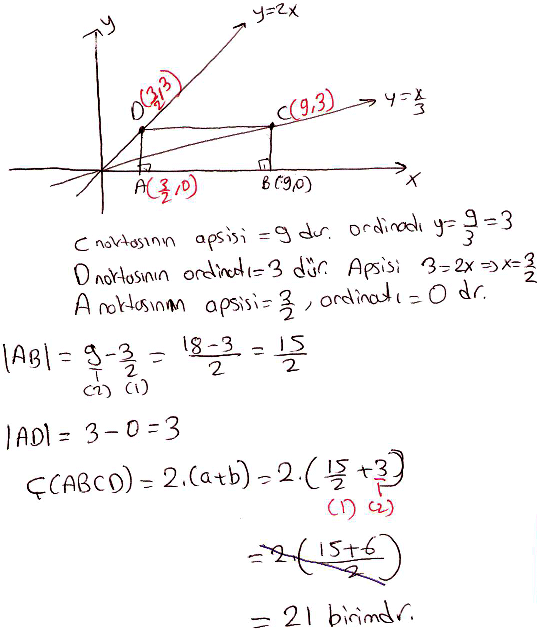 y
y=2x
D(3/2,3)
C(9,3)
y=x/3
A(3/2,0)
B(9,0)
x
C noktasının apsisi = 9 dur. ordinadı y=9/3=3
D noktasının ordinatı=3 dür. Apsisi 3=2x⇒x=3/2
A noktasının apsisi=3/2, ordinatı=0 dr.
|AB| = 9-3/2 = 18-3/2 = 15/2
(2) (1)
|AD| = 3-0=3
Ç(ABCD) = 2.(a+b) = 2.(15/2+3)
(1) (2)
=2.(15+6/2)
= 21 birimdr.